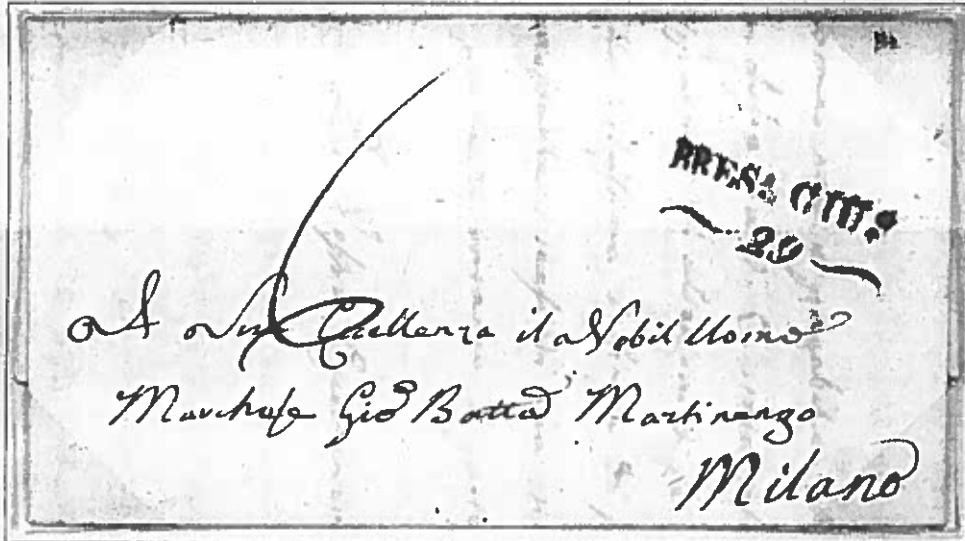 BRESA GIU.º
29
A Sua Eccellenza il Nobil Uomo
Marchese Gio Batta Martinengo
Milano